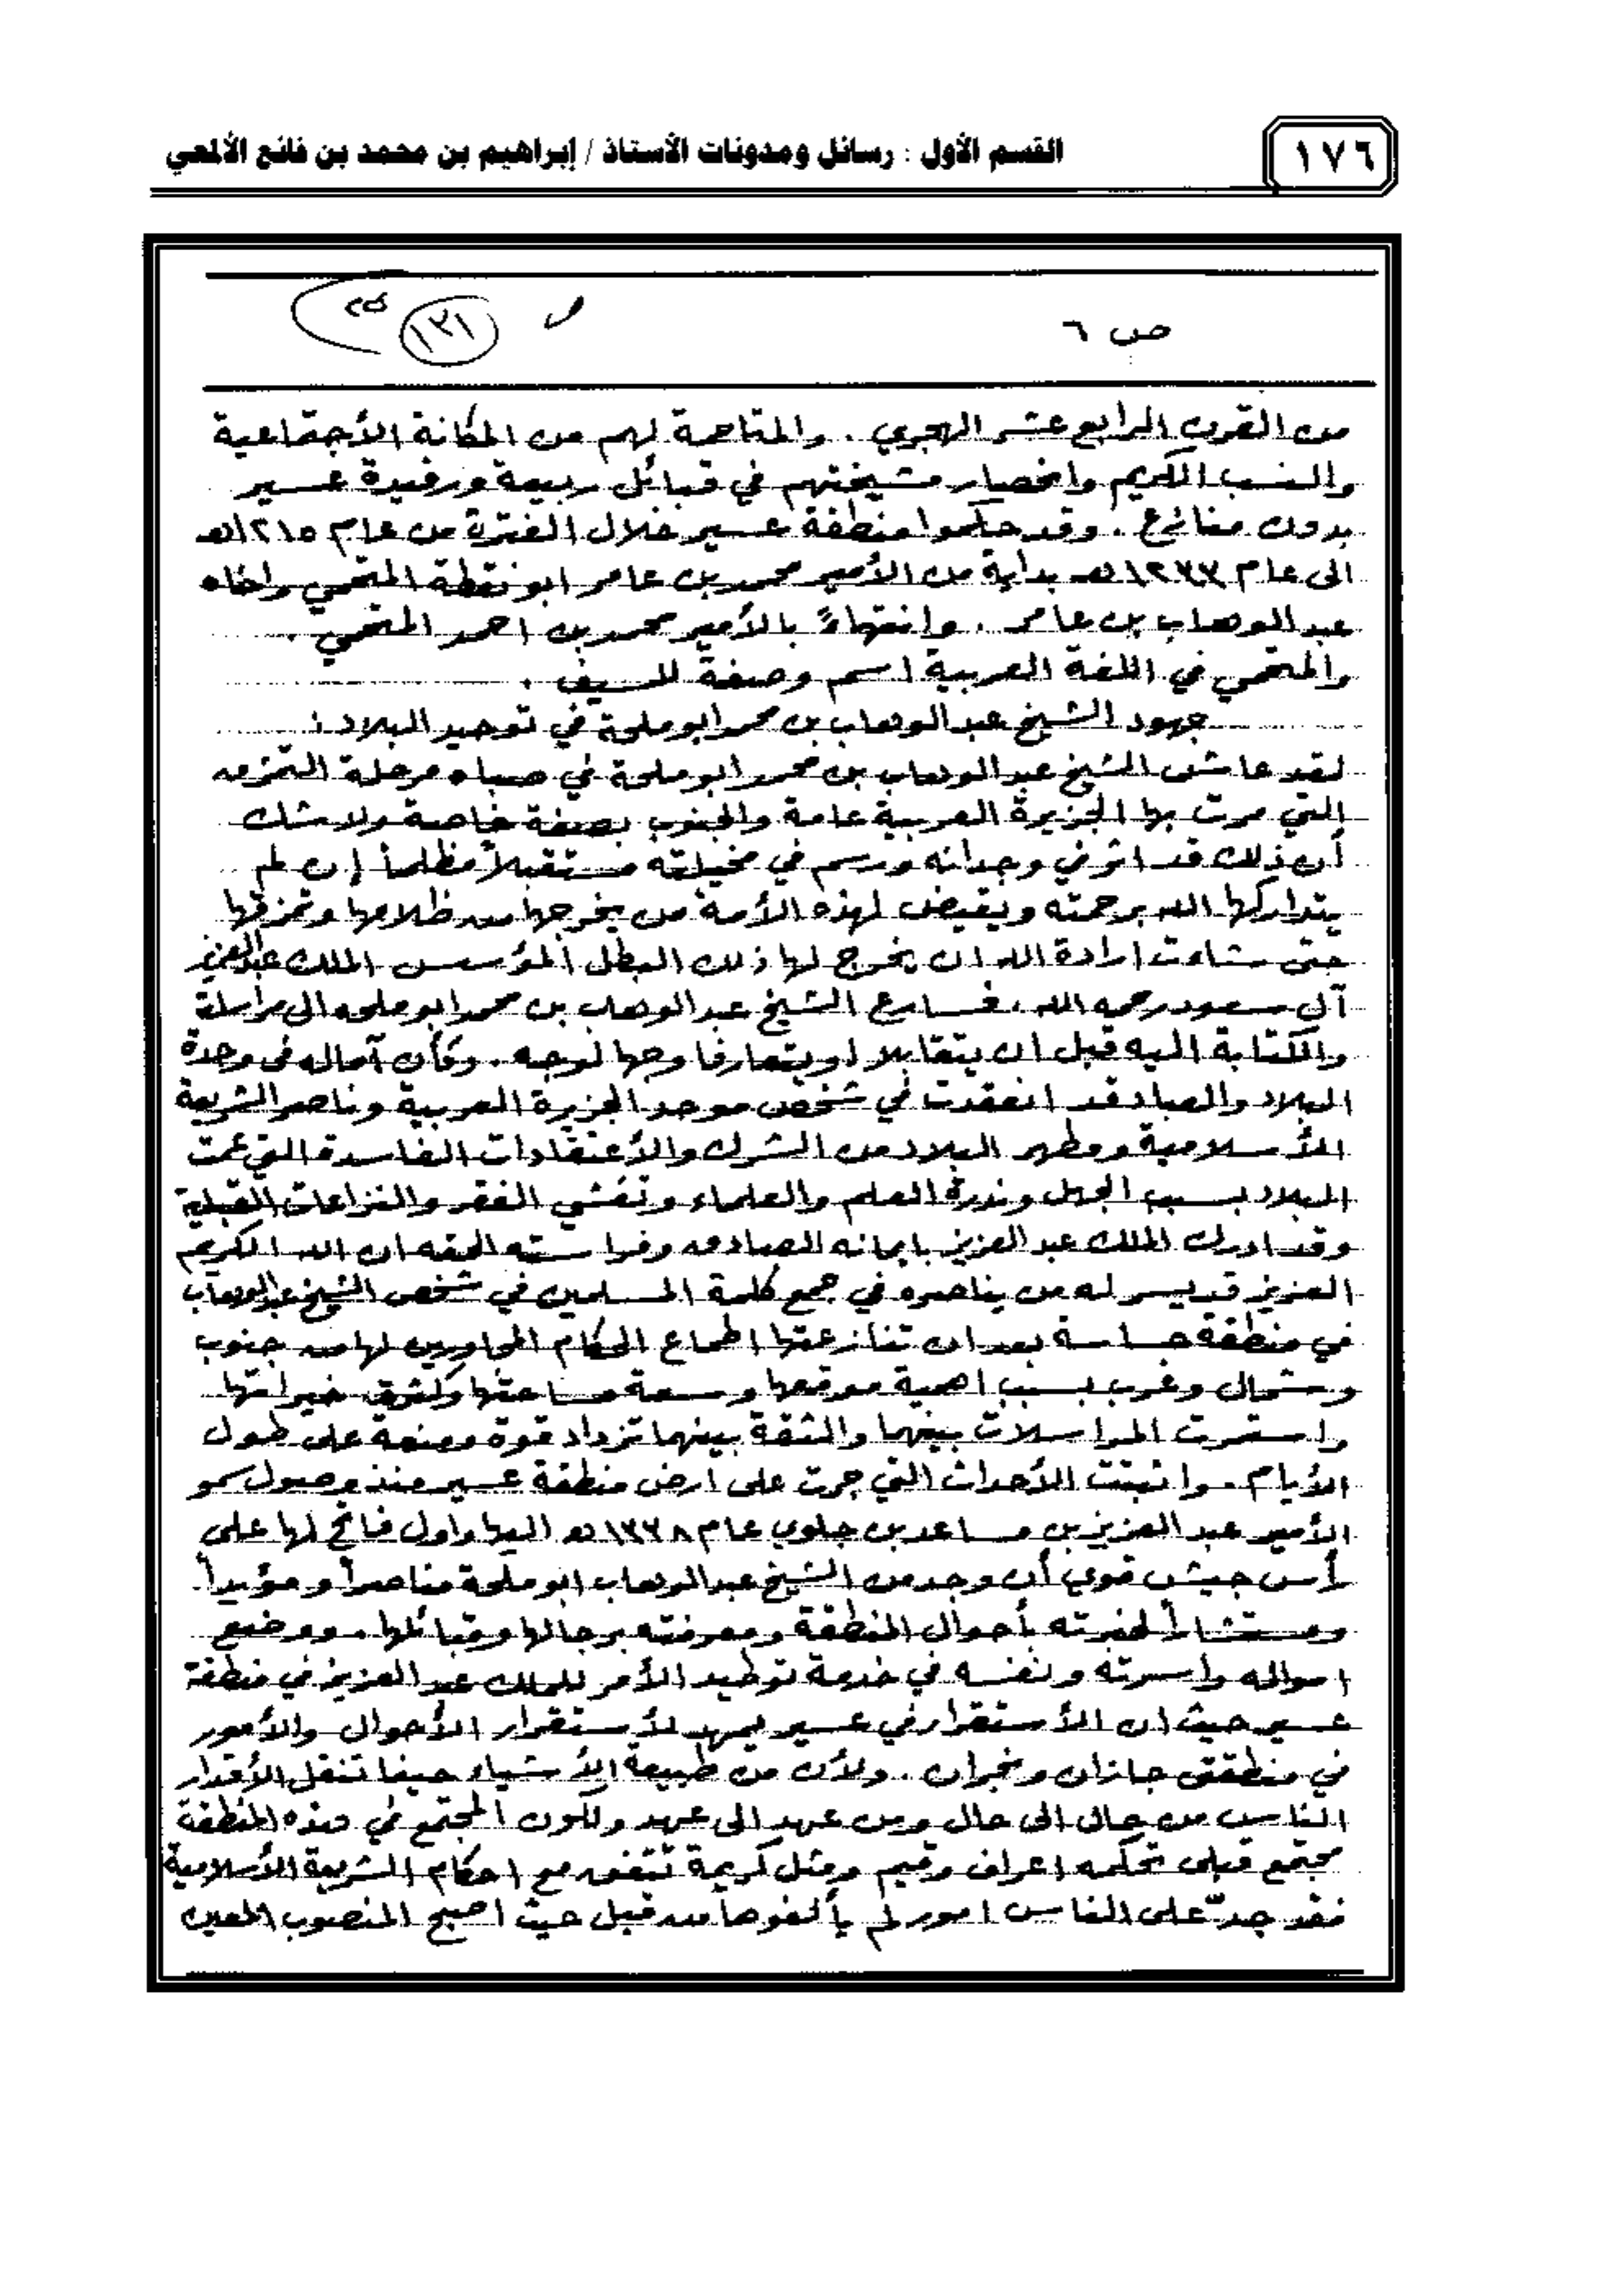 ١٧٦
القسم الأول : رسائل ومدونات الأستاذ / إبراهيم بن محمد بن فائع الألمعي
ص ٦
ص ١٣١
من القرن الرابع عشر الهجري . والمتاحمة لهم من المكانة الأجتماعية
والنسب الكريم وانحصار مشيختهم في قبائل ربيعة ورفيدة عسير
بدون منازع . وقد حكموا منطقة عسير خلال الفترة من عام ١٢١٥هـ
الى عام ١٢٣٣هـ بداية من الأمير محمد بن عامر ابو نقطة المتحمي واخاه
عبد الوهاب بن عامر . وانتهاءً بالأمير محمد بن احمد المتحمي .
والمتحمي في اللغة العربية اسم وصفة للسيف .
جهود الشيخ عبد الوهاب بن محمد ابو ملحة في توحيد البلاد :
لقد عايش الشيخ عبد الوهاب بن محمد ابو ملحة في صباه مرحلة التمزق
التي مرت بها الجزيرة العربية عامة والجنوب بصفة خاصة ولا شك
أن ذلك قد اثر في وجدانه ورسم في مخيلته مستقبلاً مظلماً إن لم
يتداركها الله برحمته ويقيض لهذه الأمة من يخرجها من ظلامها وتمزقها
حتى شاءت ارادة الله ان يخرج لها ذلك البطل المؤسس الملك عبد العزيز
آل سعود رحمه الله ، فسارع الشيخ عبد الوهاب بن محمد ابو ملحه الى مراسلة
والكتابة اليه قبل ان يتقابلا او يتعارفا وجها لوجه . وكأن آماله في وحدة
البلاد والعباد قد انعقدت في شخص موحد الجزيرة العربية وناصر الشريعة
الأسلامية ومطهر البلاد من الشرك والأعتقادات الفاسدة التي عمت
البلاد بسبب الجهل وندرة العلم والعلماء وتفشي الفقر والنزاعات القبلية
وقد ادرك الملك عبد العزيز بايمانه الصادق وفراسته الحقه ان الله الكريم
العزيز قد يسر له من يناصره في جمع كلمة المسلمين في شخص الشيخ عبد الوهاب
في منطقة حساسة بعد ان تنازعتها اطماع الحكام المجاورين لها من جنوب
وشمال وغرب بسبب اهمية موقعها وسعة مساحتها وكثرة خيراتها
واستمرت المراسلات بينهما والثقة بينهما تزداد قوة ومنعة على طول
الأيام . واثبتت الأحداث التي جرت على ارض منطقة عسير منذ وصول سمو
الأمير عبد العزيز بن مساعد بن جلوي عام ١٣٣٨هـ اليها واول فاتح لها على
رأس جيش قوي أن وجد من الشيخ عبد الوهاب ابو ملحة مناصراً ومؤيداً
ومستشاراً لخبرته بأحوال المنطقة ومعرفته برجالها وقبائلها . ووضع
امواله واسرته ونفسه في خدمة توطيد الأمر للملك عبد العزيز في منطقة
عسير حيث ان الأستقرار في عسير يمهد لأستقرار الأحوال والأمور
في منطقتي جازان ونجران . ولأن من طبيعة الأشياء حينما تنقل الأقدار
الناس من حال الى حال ومن عهد الى عهد ولكون المجتمع في هذه المنطقة
مجتمع قبلي تحكمه اعراف وقيم ومثل كريمة تتفق مع احكام الشريعة الأسلامية
فقد جدّ على الناس امور لم يألفوها من قبل حيث اصبح المنصوب المعين